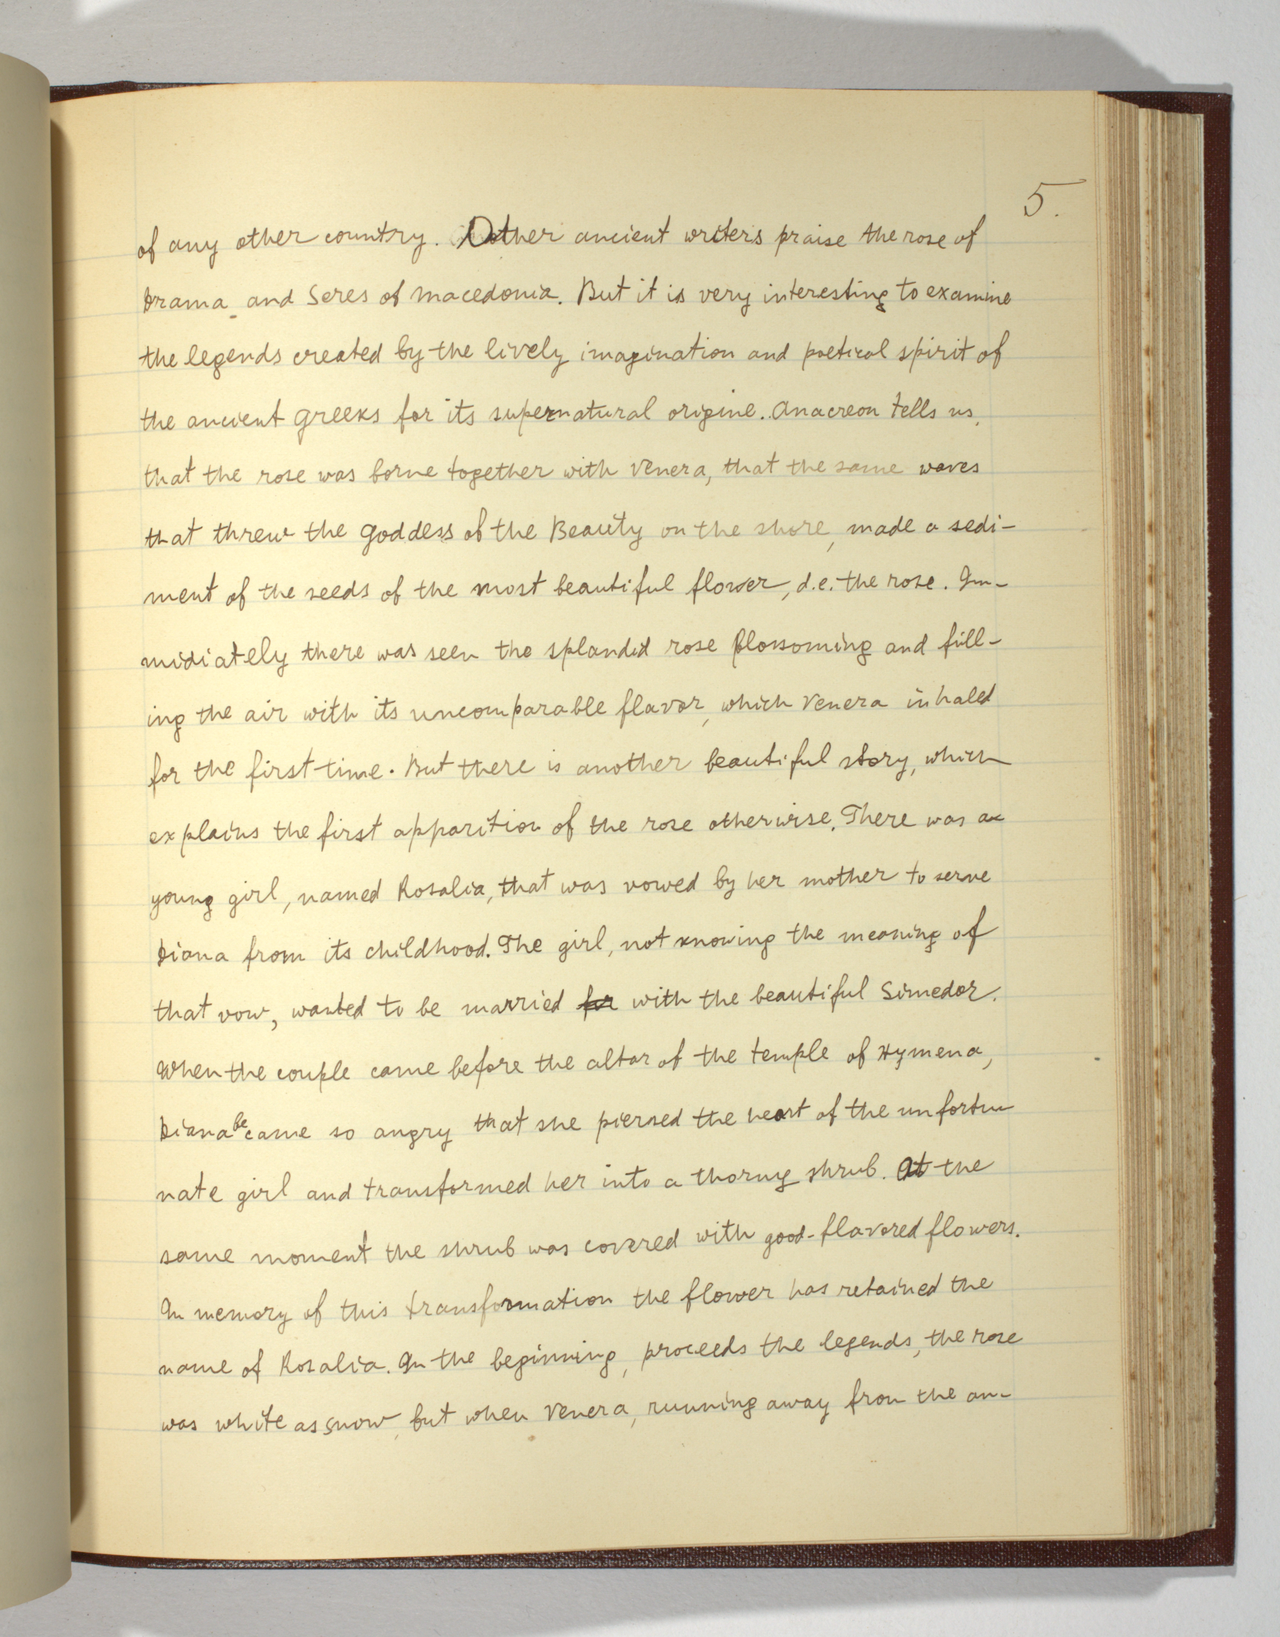 5.
of any other country. Other ancient writers praise the rose of
Drama and Seres of Macedonia. But it is very interesting to examine
the legends created by the lively imagination and poetical spirit of
the ancient Greeks for its supernatural origine. Anacreon tells us,
that the rose was borne together with Venera, that the same waves
that threw the Goddess of the Beauty on the shore, made a sedi-
ment of the seeds of the most beautiful flower, d.e. the rose. Im-
midiately there was seen the splandid rose blossoming and fill-
ing the air with its uncomparable flavor, which Venera inhaled
for the first time. But there is another beautiful story, which
explains the first apparition of the rose otherwise. There was a
young girl, named Rosalia, that was vowed by her mother to serve
Diana from its childhood. The girl, not knowing the meaning of
that vow, wanted to be married for with the beautiful Simedor.
When the couple came before the altar of the temple of Hymena,
Diana became so angry that she piersed the heart of the unfortu-
nate girl and transformed her into a thorny shrub. At the
same moment the shrub was covered with good-flavored flowers.
In memory of this transformation the flower has retained the
name of Rosalia. In the beginning, proceeds the legends, the rose
was white as snow, but when Venera, running away from the an-